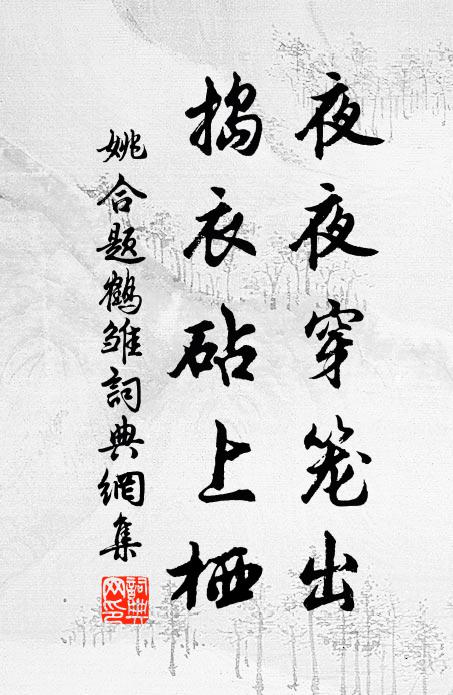 夜夜穿笼出
捣衣砧上栖
姚合题鹤雏詞典網集
詞典網印